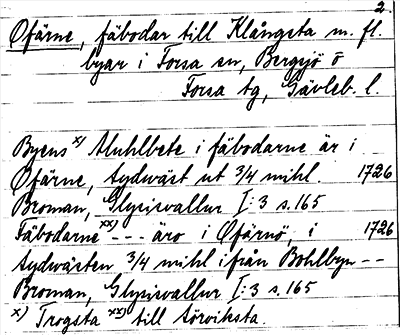 2.
Ofärne, fäbodar till Klångsta m. fl.
byar i Forsa sn, Bergsjö o
Forsa tg, Gävleb. l.
Byens x) Muhlbete i fäbodarne är i
Øfärne, sydwäst ut 3/4 mihl 1726
Broman, Glysisvallur I:3 s. 165
Fäbodarne xx) --- äro i Øfärnö, i 1726
sydwästen 3/4 mihl ifrån Bohlbyn --
Broman, Glysisvallur I:3 s. 165
x) Trogsta xx) till Sörviksta